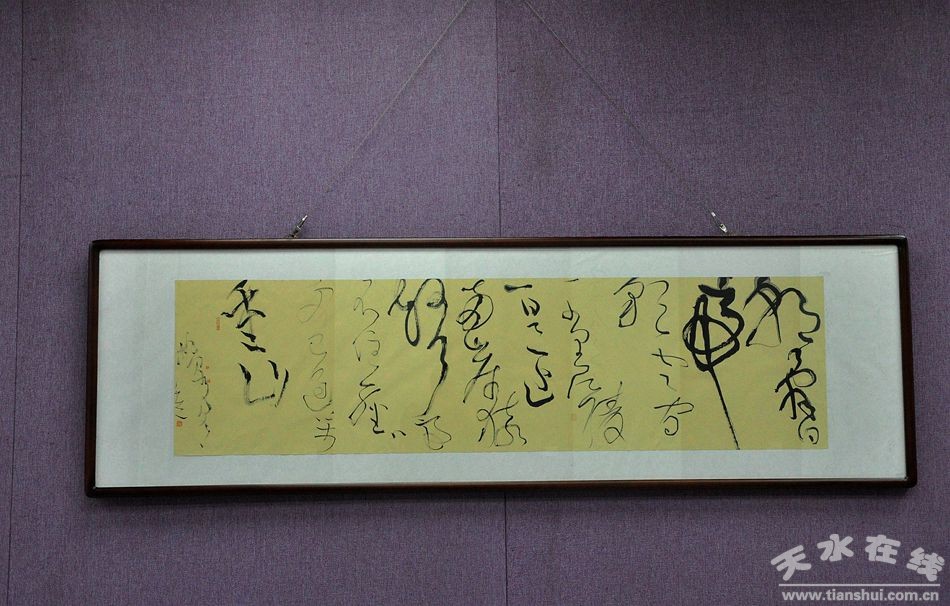 朝辭白
帝
彩雲間
千里江陵
一日還
兩岸猿
聲啼
不住輕
舟已過萬
重山
天水在线
www.tianshui.com.cn